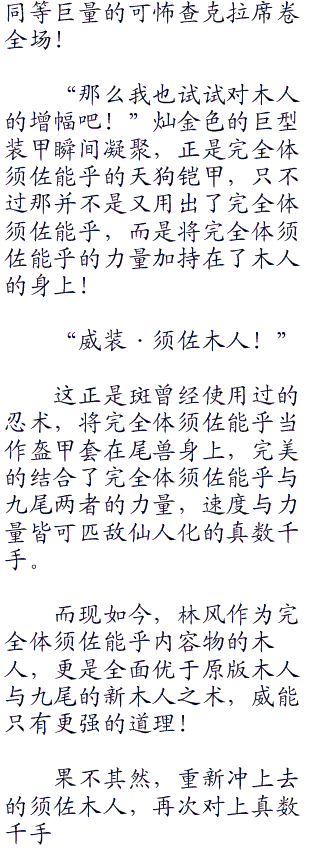 同等巨量的可怖查克拉席卷
全场！
“那么我也试试对木人
的增幅吧！”灿金色的巨型
装甲瞬间凝聚，正是完全体
须佐能乎的天狗铠甲，只不
过那并不是又用出了完全体
须佐能乎，而是将完全体须
佐能乎的力量加持在了木人
的身上！
“威装·须佐木人！”
这正是斑曾经使用过的
忍术，将完全体须佐能乎当
作盔甲套在尾兽身上，完美
的结合了完全体须佐能乎与
九尾两者的力量，速度与力
量皆可匹敌仙人化的真数千
手。
而现如今，林风作为完
全体须佐能乎内容物的木
人，更是全面优于原版木人
与九尾的新木人之术，威能
只有更强的道理！
果不其然，重新冲上去
的须佐木人，再次对上真数
千手